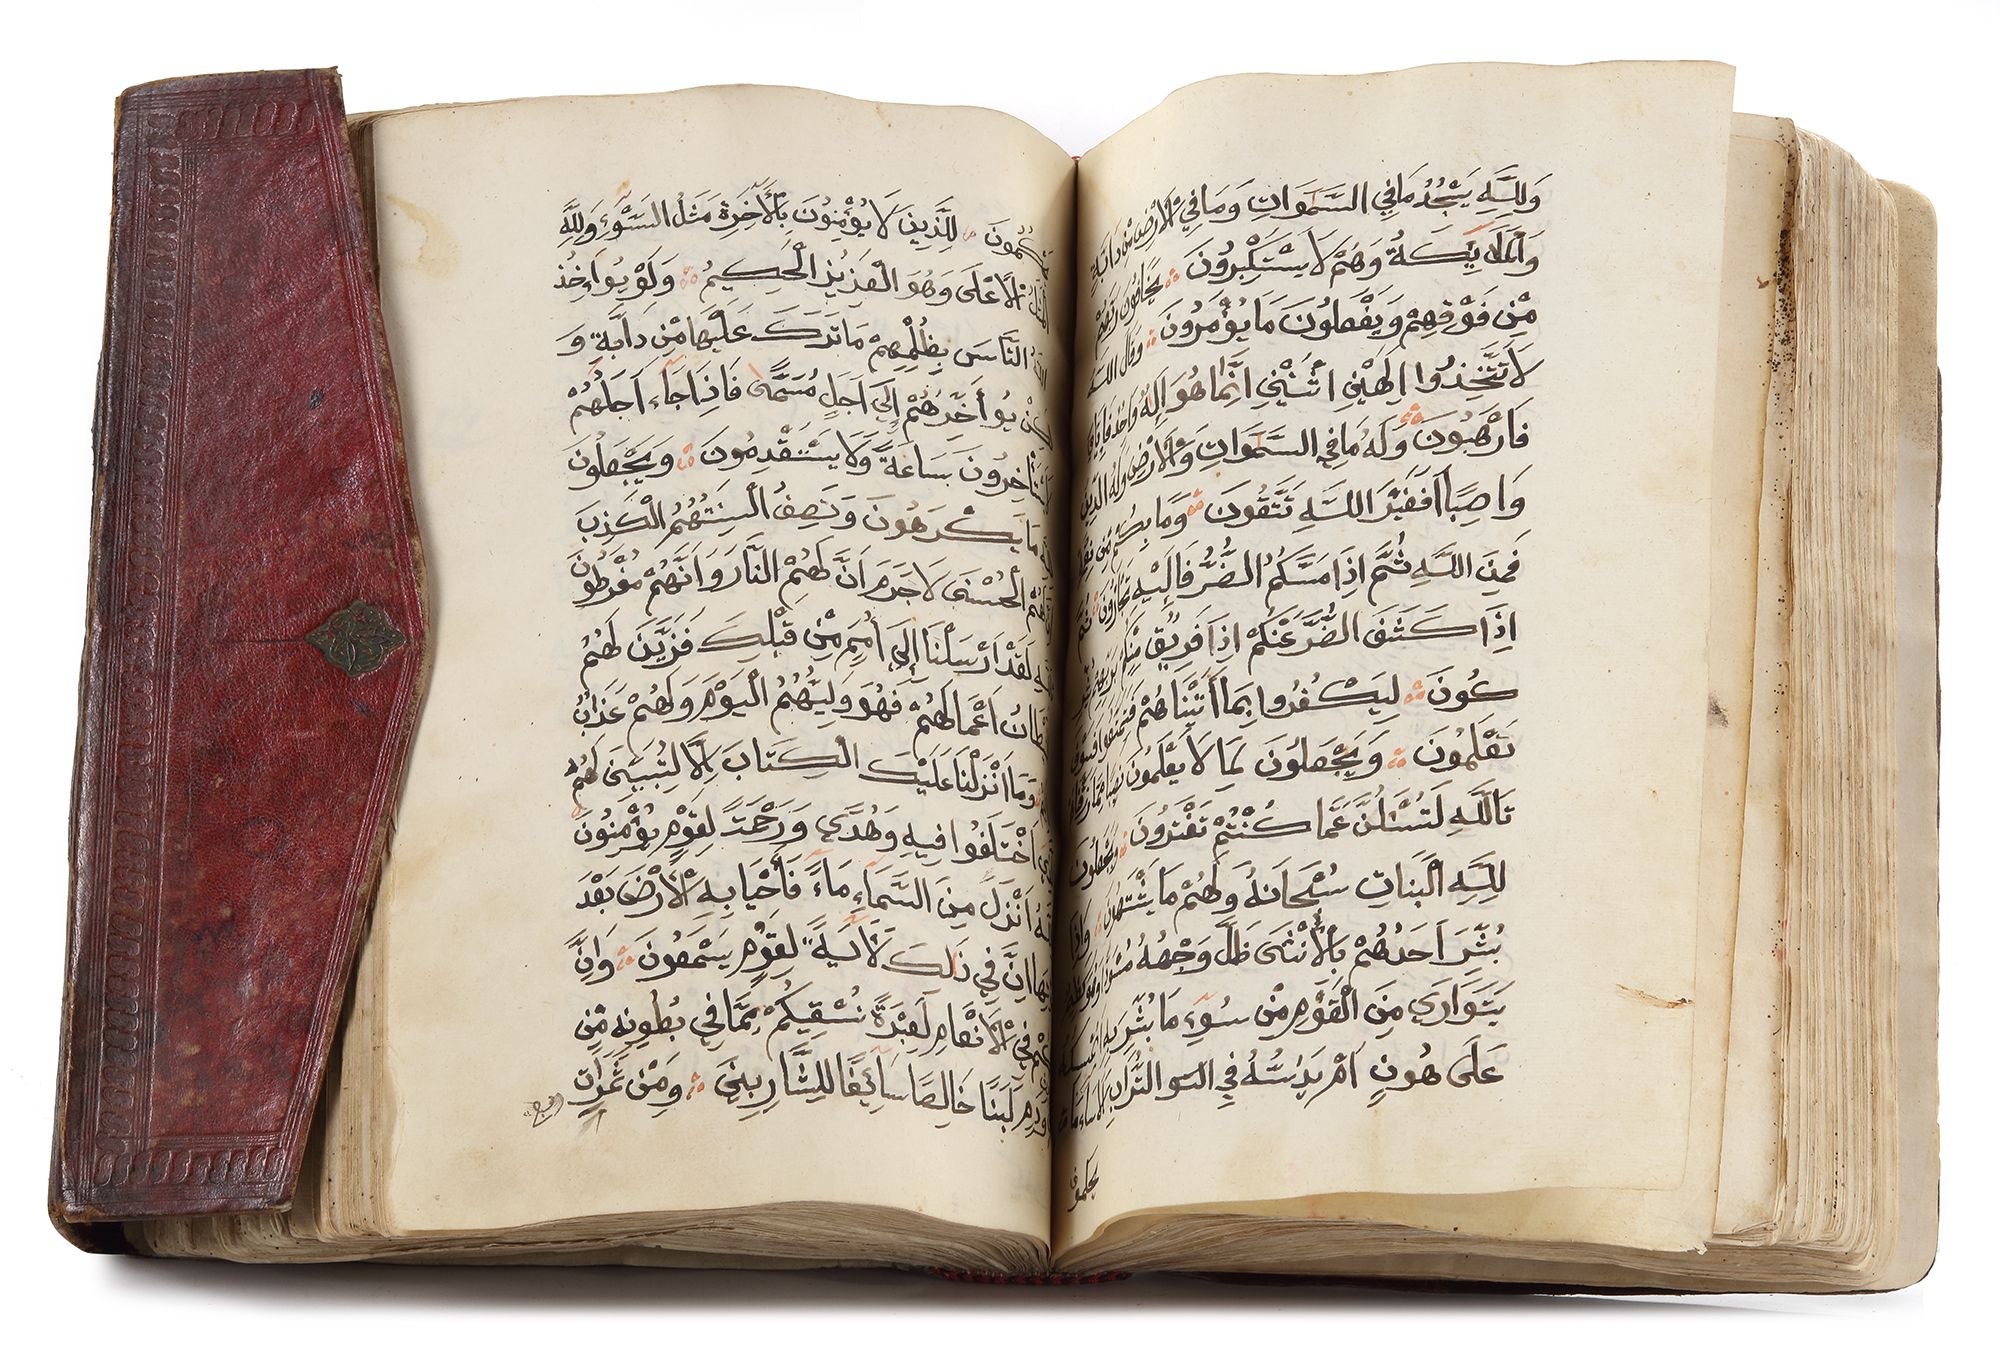 وَلِلَّهِ يَسْجُدُ مَا فِي السَّمَوَاتِ وَمَا فِي الْأَرْضِ مِنْ دَابَّةٍ
وَالْمَلَايِكَةُ وَهُمْ لَا يَسْتَكْبِرُونَ يَخَافُونَ رَبَّهُمْ
مِنْ فَوْقِهِمْ وَيَفْعَلُونَ مَا يُؤْمَرُونَ وَقَالَ اللَّهُ
لَا تَتَّخِذُوا إِلَهَيْنِ اثْنَيْنِ إِنَّمَا هُوَ إِلَهٌ وَاحِدٌ فَإِيَّايَ
فَارْهَبُونَ وَلَهُ مَا فِي السَّمَوَاتِ وَالْأَرْضِ وَلَهُ الدِّينُ
وَاصِبًا أَفَغَيْرَ اللَّهِ تَتَّقُونَ وَمَا بِكُمْ مِنْ نِعْمَةٍ
فَمِنَ اللَّهِ ثُمَّ إِذَا مَسَّكُمُ الضُّرُّ فَإِلَيْهِ تَجْأَرُونَ ثُمَّ
إِذَا كَشَفَ الضُّرَّ عَنْكُمْ إِذَا فَرِيقٌ مِنْكُمْ بِرَبِّهِمْ يُشْرِ
كُونَ لِيَكْفُرُوا بِمَا أَتَيْنَاهُمْ فَتَمَتَّعُوا فَسَوْفَ
تَعْلَمُونَ وَيَجْعَلُونَ لِمَا لَا يَعْلَمُونَ نَصِيبًا مِمَّا رَزَقْنَاهُمْ
تَاللَّهِ لَتُسْئَلُنَّ عَمَّا كُنْتُمْ تَفْتَرُونَ وَيَجْعَلُونَ
لِلَّهِ الْبَنَاتِ سُبْحَانَهُ وَلَهُمْ مَا يَشْتَهُونَ وَإِذَا
بُشِّرَ أَحَدُهُمْ بِالْأُنْثَى ظَلَّ وَجْهُهُ مُسْوَدًّا وَهُوَ كَظِيمٌ
يَتَوَارَى مِنَ الْقَوْمِ مِنْ سُوءِ مَا بُشِّرَ بِهِ أَيُمْسِكُهُ
عَلَى هُونٍ أَمْ يَدُسُّهُ فِي التُّرَابِ أَلَا سَاءَ مَا
يحكمون
يَحْكُمُونَ لِلَّذِينَ لَا يُؤْمِنُونَ بِالْأَخِرَةِ مَثَلُ السَّوْءِ وَلِلَّهِ
الْمَثَلُ الْأَعْلَى وَهُوَ الْعَزِيزُ الْحَكِيمُ وَلَوْ يُوَاخِذُ
اللَّهُ النَّاسَ بِظُلْمِهِمْ مَا تَرَكَ عَلَيْهَا مِنْ دَابَّةٍ وَ
لَكِنْ يُوَأَخِّرُهُمْ إِلَى أَجَلٍ مُسَمًّى فَإِذَا جَاءَ أَجَلُهُمْ
لَا يَسْتَأْخِرُونَ سَاعَةً وَلَا يَسْتَقْدِمُونَ وَيَجْعَلُونَ
لِلَّهِ مَا يَكْرَهُونَ وَتَصِفُ أَلْسِنَتُهُمُ الْكَذِبَ
أَنَّ لَهُمُ الْحُسْنَى لَا جَرَمَ أَنَّ لَهُمُ النَّارَ وَأَنَّهُمْ مُفْرَطُونَ
تَاللَّهِ لَقَدْ أَرْسَلْنَا إِلَى أُمَمٍ مِنْ قَبْلِكَ فَزَيَّنَ لَهُمُ
الشَّيْطَانُ أَعْمَالَهُمْ فَهُوَ وَلِيُّهُمُ الْيَوْمَ وَلَهُمْ عَذَابٌ
وَمَا أَنْزَلْنَا عَلَيْكَ الْكِتَابَ إِلَّا لِتُبَيِّنَ لَهُمُ
الَّذِي اخْتَلَفُوا فِيهِ وَهُدًى وَرَحْمَتً لِقَوْمٍ يُؤْمِنُونَ
وَاللَّهُ أَنْزَلَ مِنَ السَّمَاءِ مَاءً فَأَحْيَا بِهِ الْأَرْضَ بَعْدَ
مَوْتِهَا إِنَّ فِي ذَلِكَ لَأَيَةً لِقَوْمٍ يَسْمَعُونَ وَإِنَّ
لَكُمْ فِي الْأَنْعَامِ لَعِبْرَةً نُسْقِيكُمْ مِمَّا فِي بُطُونِهِ مِنْ
وَدَمٍ لَبَنًا خَالِصًا سَائِغًا لِلشَّارِبِينَ وَمِنْ ثَمَرَاتِ